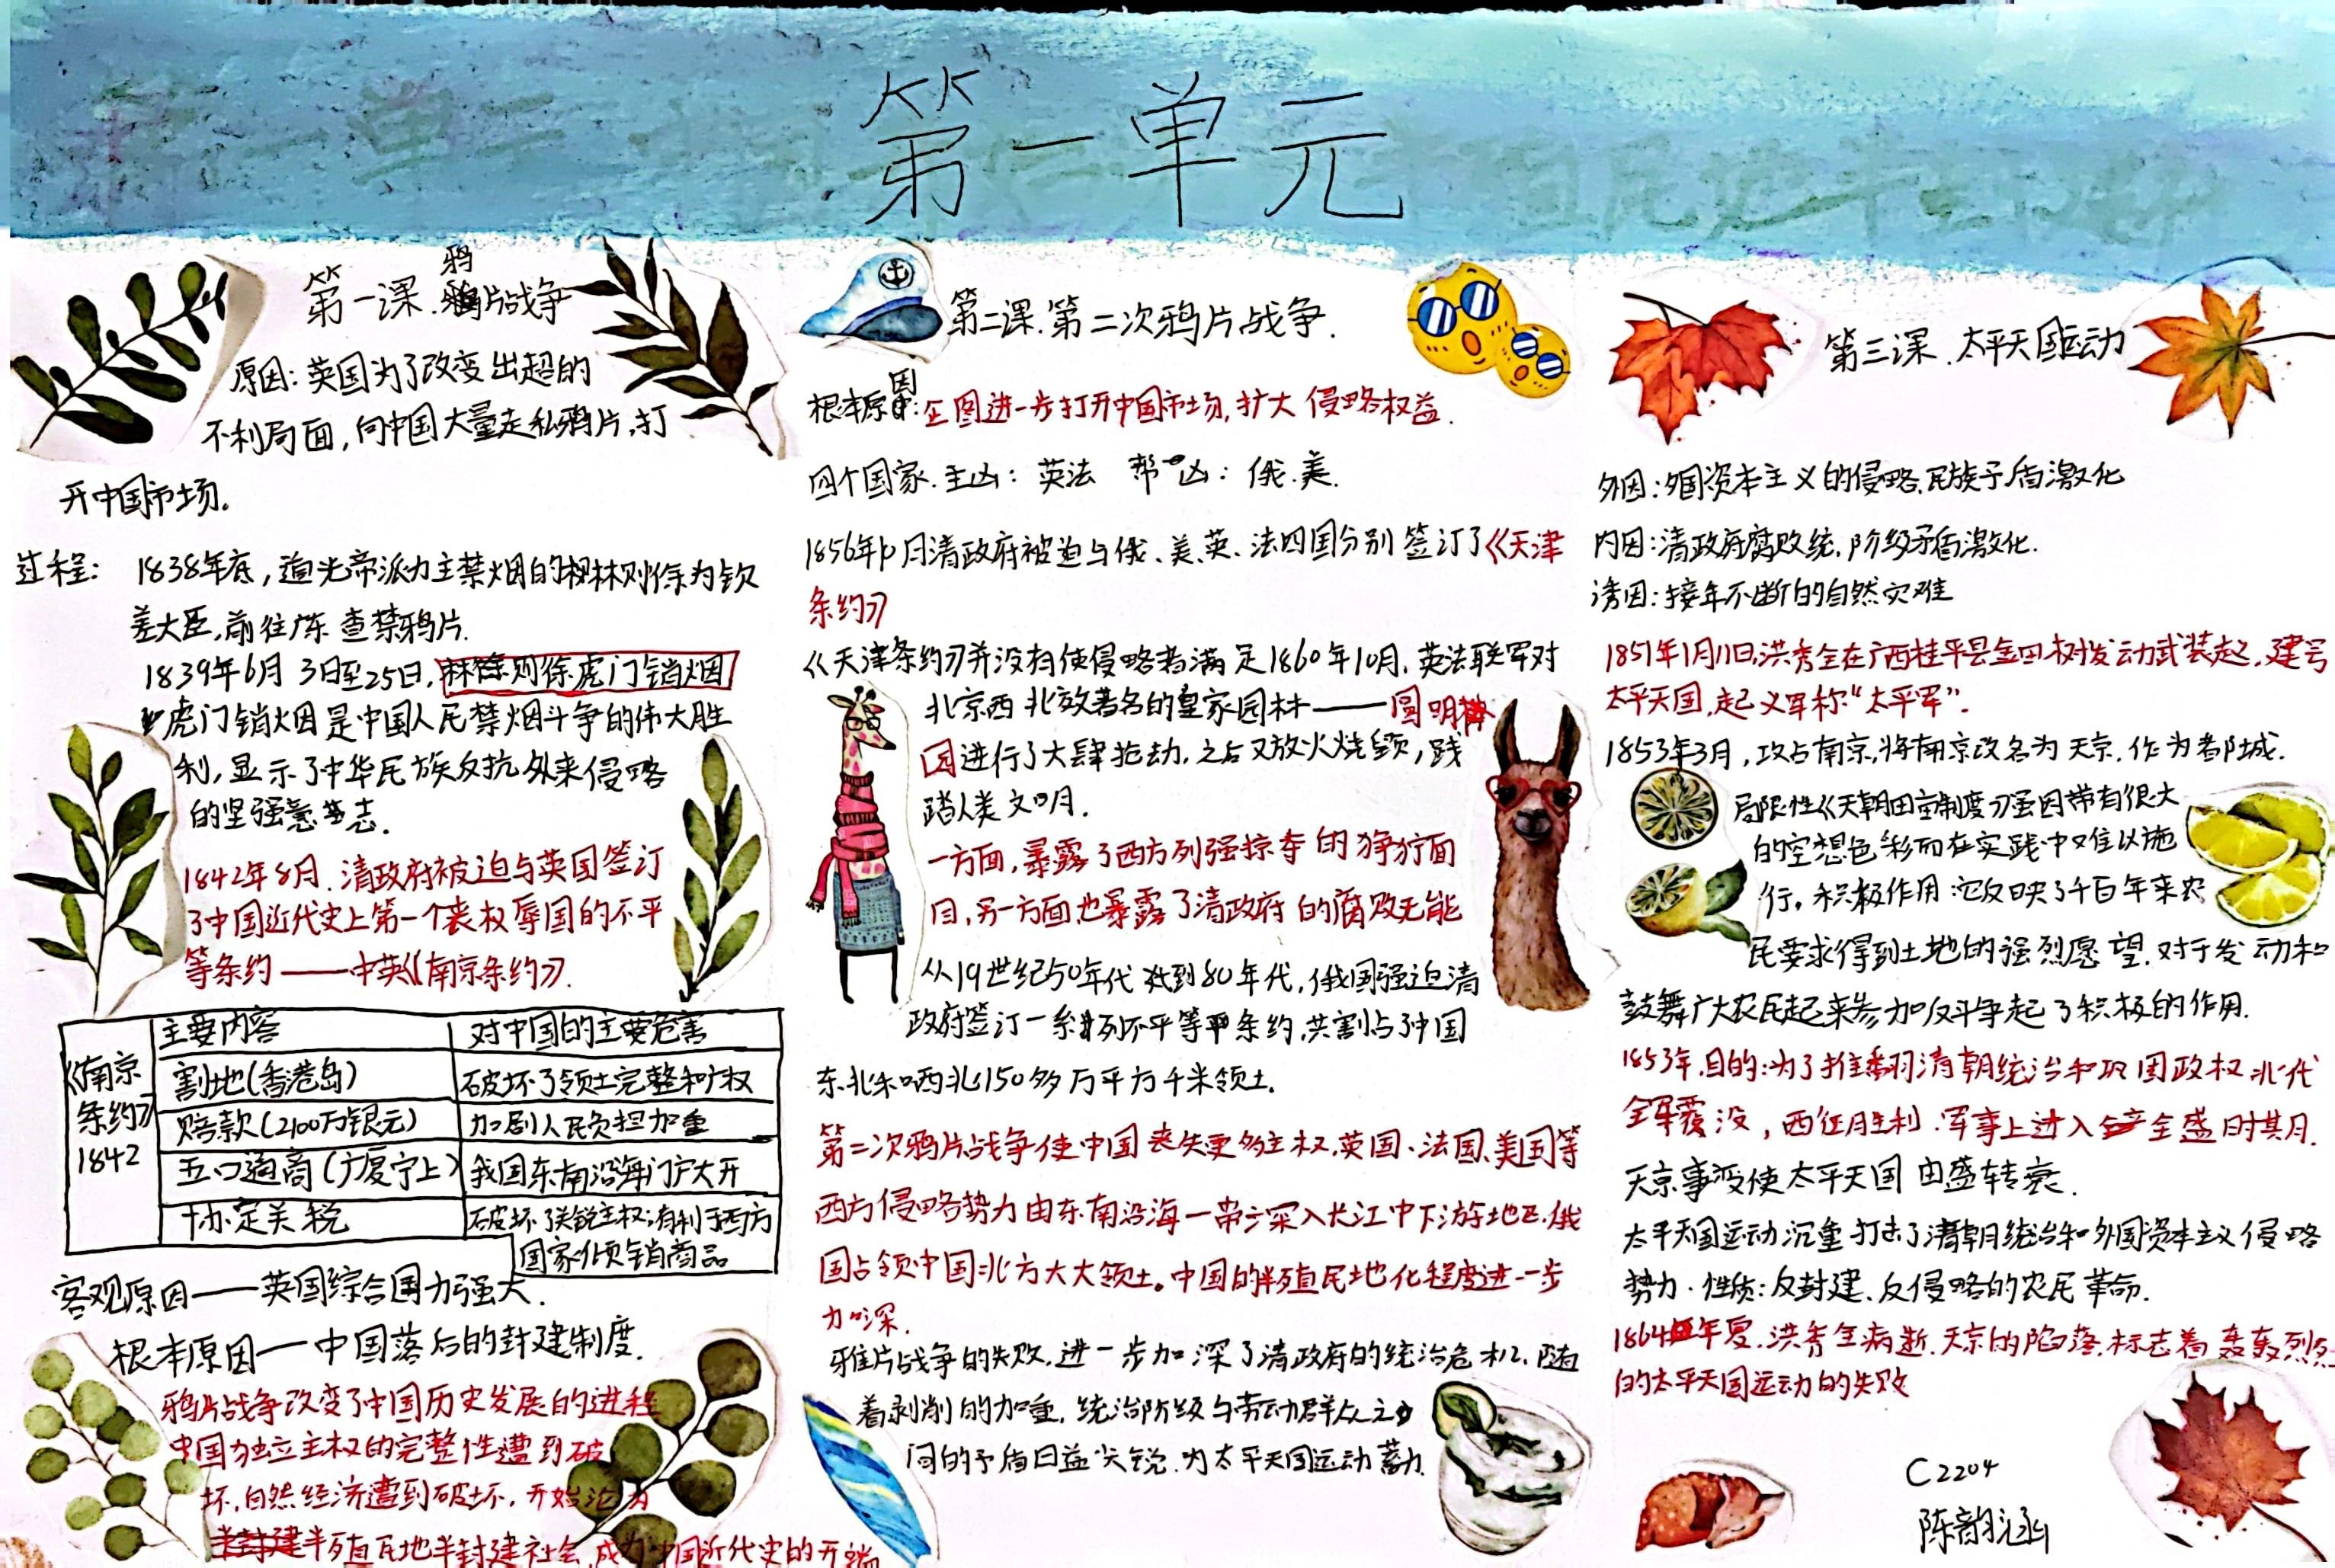 第一单元
第一课.鸦片战争
原因:英国为了改变出超的
不利局面,向中国大量走私鸦片,打
开中国市场。
过程: 1838年底,道光帝派力主禁烟的林则徐为钦
差大臣,前往广东查禁鸦片.
1839年6月3日至25日,林则徐虎门销烟
虎门销烟是中国人民禁烟斗争的伟大胜
利,显示了中华民族反抗外来侵略
的坚强意志.
1842年8月.清政府被迫与英国签订
了中国近代史上第一个丧权辱国的不平
等条约——中英《南京条约》.
《南京条约》1842
主要内容 对中国的主要危害
割地(香港岛) 破坏了领土完整和主权
赔款(2100万银元) 加剧人民负担加重
五口通商(广厦宁上) 我国东南沿海门户大开
协定关税 破坏了关税主权;有利于西方
国家倾销商品
客观原因——英国综合国力强大.
根本原因—中国落后的封建制度.
鸦片战争改变了中国历史发展的进程
中国独立主权的完整性遭到破
坏,自然经济遭到破坏,开始沦为
半殖民地半封建社会,成为中国近代史的开端
第二课.第二次鸦片战争.
根本原因:企图进一步打开中国市场,扩大侵略权益.
四个国家.主凶:英法 帮凶:俄.美.
月清政府被迫与俄、美、英、法四国分别签订了《天津
条约》
《天津条约》并没有使侵略者满足1860年10月,英法联军对
北京西北效著名的皇家园林——圆明
园进行了大肆抢劫,之后又放火烧毁,践
踏人类文明.
一方面,暴露了西方列强掠夺的狰狞面
目,另一方面也暴露了清政府的腐败无能
从19世纪50年代到80年代,俄国强迫清
政府签订一系列不平等条约,共割占了中国
东北和西北150多万平方千米领土.
第二次鸦片战争使中国丧失更多主权,英国、法国、美国等
西方侵略势力由东南沿海一带深入长江中下游地区.俄
国占领中国北方大大领土。中国的半殖民地化程度进一步
加深.
雅片战争的失败,进一步加深了清政府的统治危机,随
着剥削的加重,统治阶级与劳动群众之
间的予盾日益尖锐,为太平天国运动蓄力
第三课.太平天国运动
外因:外国资本主义的侵略,民族予盾激化
内因:清政府腐败统,阶级矛盾激化.
诱因:接年不断的自然灾难
1851年1月11日,洪秀全在广西桂平县金田村发动武装起,建号
太平天国,起义军称“太平军”.
1853年3月,攻占南京,将南京改名为天京,作为都城.
局限性《天朝田亩制度》虽因带有很大
的空想色彩而在实践中难以施
行。积极作用:它反映了千百年来农
民要求得到土地的强烈愿望,对于发动和
鼓舞广大农民起来参加反斗争起了积极的作用.
1853年.目的:为了推翻清朝统治和巩固政权.北伐
全军覆没,西征胜利.军事上进入全盛时期.
天京事变使太平天国由盛转衰.
太平天国运动沉重打击了清朝统治和外国资本主义侵略
势力.性质:反封建、反侵略的农民革命.
1864年夏.洪秀全病逝.天京的陷落,标志着轰轰烈烈
的太平天国运动的失败
C2204
陈韵涵